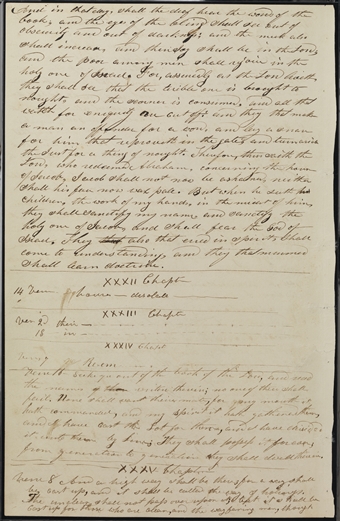 And in that day, shall the deaf hear the words of the
book, and the eyes of the blind shall see out of
obscurity and out of darkness; and the meek also
shall increase, and their joy shall be in the Lord,
and the poor among men shall rejoice in the
holy one of Israel. For, assuredly as the Lord liveth,
they shall see that the terrible one is brought to
nought, and the scorner is consumed, and all that
watch for iniquity are cut off: and they that make
a man an offender for a word, and lay a snare
for him that reproveth in the gate, and turn aside
the Just for a thing of nought. Therefore, thus saith the
Lord, who redeemed Abraham, concerning the house
of Jacob, Jacob shall not now be ashamed, neither
shall his face now wax pale. But when he seeth his
children, the work of my hands, in the midst of him,
they shall sanctify my name, and sanctify the
holy one of Jacob, and shall fear the God of
Israel. They also that erred in spirit, shall
come to understanding, and they that murmured
shall learn doctrine.
XXXII Chapter
14 houses desolate
XXXIII Chapter
2d their
18 in
XXXIV Chapt
Seek ye out of the book of the Lord, and read
the names written therein; no one of these shall
fail. None shall want their mate; for my mouth it
hath commanded, and my spirit it hath gathered them,
and I have cast the Lot for them, and I have divided
it unto them by line; They shall possess it forever,
from generation to generation they shall dwell therein.
XXXV Chapter
8 And a high way shall be there, for a way shall
be cast up, and it shall be called the way of holiness.
The unclean shall not pass over upon it, but it shall be
cast up for those who are clean, and the wayfaring men, though